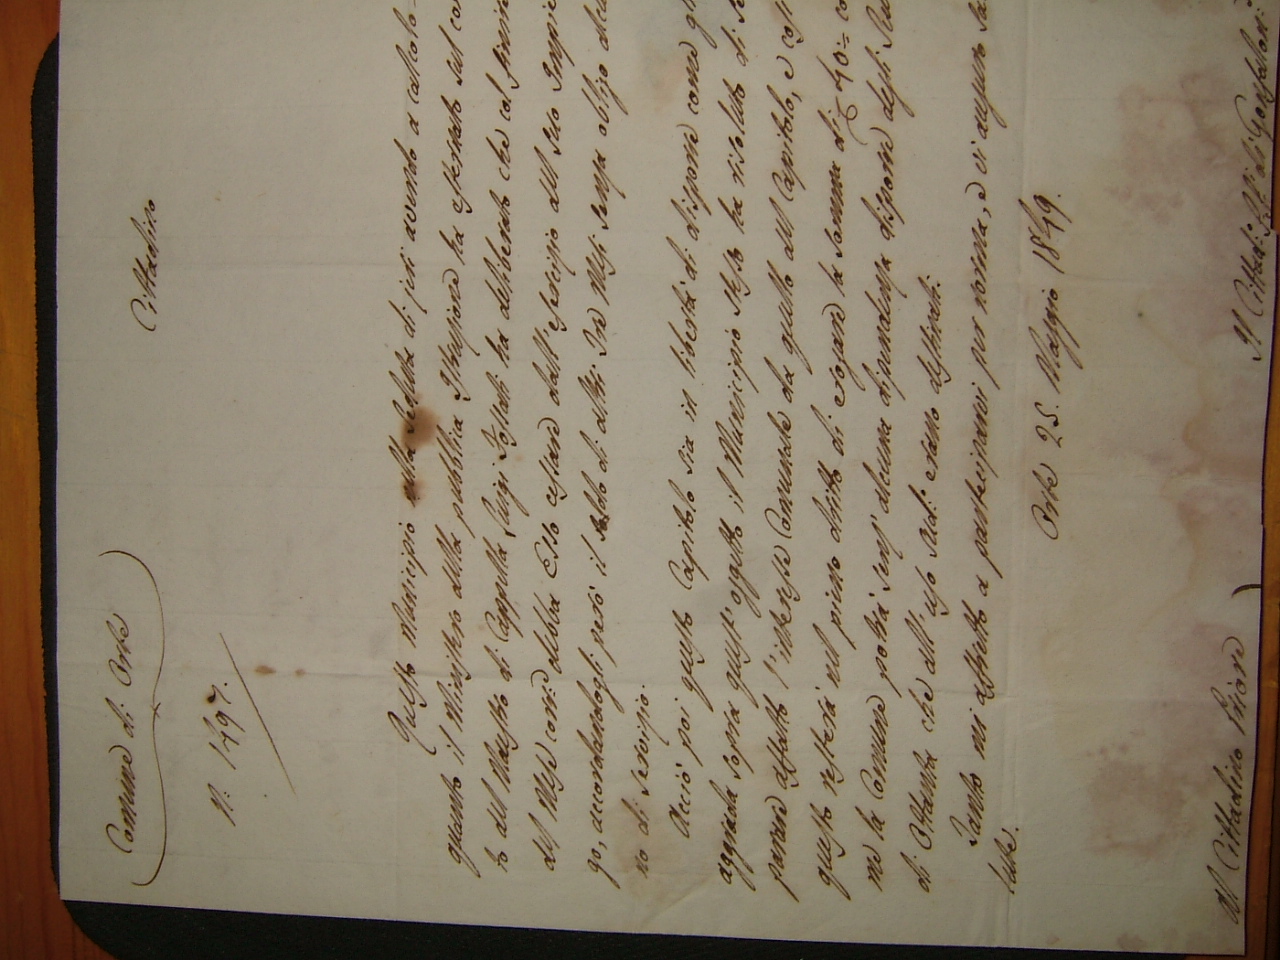 Comune di Orte
Cittadino
N. 1497.
Questo Municipio nella seduta di jeri avendo a calcolo
quanto il Ministero della pubblica Istruzione ha esternato sul con
to del Maestro di Cappella Luigi Fossati ha deliberato che col finire
del Mese corre debba Esso cessare dall'esercizio del suo Impie
go, accordandogli però il soldo di altri tre Mesi senza obligo alcu
no di servizio.
Acciò poi questo Capitolo sia in libertà di disporre come gli
aggrada sopra quest'oggetto il Municipio stesso ha risoluto di se
parare affatto l'interesse Comunale da quello del Capitolo, e così
questo resterà nel pieno diritto di erogare la somma di 40= co
me la Comune potrà senz'alcuna dipendenza disporre degli Scu
di Ottanta che all'uso sud: erano destinati.
Tanto mi affretto a parteciparvi per norma, e vi auguro sa
lute.
Orte 25. Maggio 1849.
Al Cittadino Priore
Il Cittad: